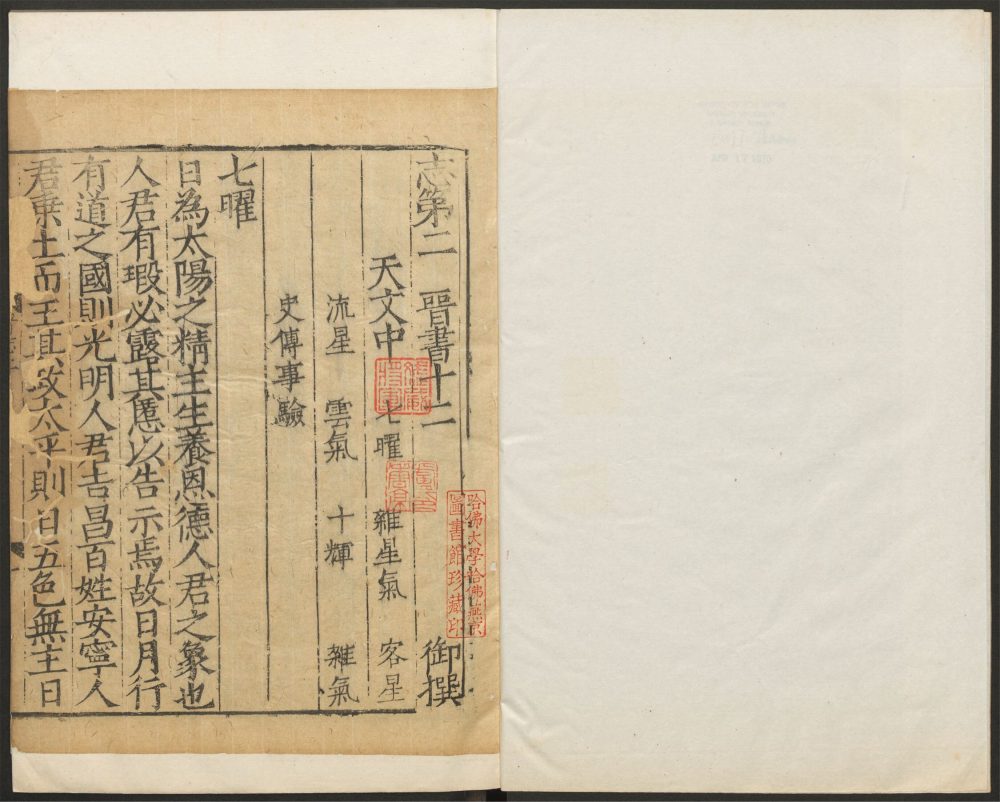 志第二 晉書十二 御撰
天文中 七曜 雜星氣 客星
流星 雲氣 十煇 雜氣
史傳事驗
七曜
日為太陽之精主生養恩德人君之象也
人君有瑕必露其慝以告示焉故日月行
有道之國則光明人君吉昌百姓安寧人
君乘土而王其政太平則日五色無主日
哈佛大學哈佛燕京
圖書館珍藏印